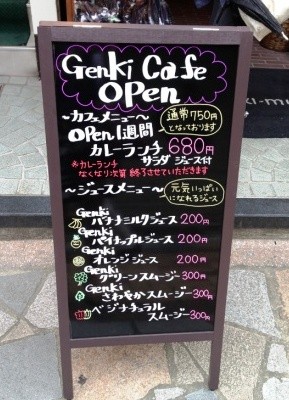 Genki Cafe
OPen
～カフェメニュー～
通常750円
となっております
OPen1週間
カレーランチ 680円
サラダ ジュース付
※カレーランチ
なくなり次第 終了させていただきます
～ジュースメニュー～
元気いっぱい
になれるジュース
Genki
バナナミルクジュース 200円
Genki
パイナップルジュース 200円
Genki
オレンジジュース 200円
Genki
グリーンスムージー 300円
Genki
さわやかスムージー 300円
ベジナチュラル
スムージー 300円